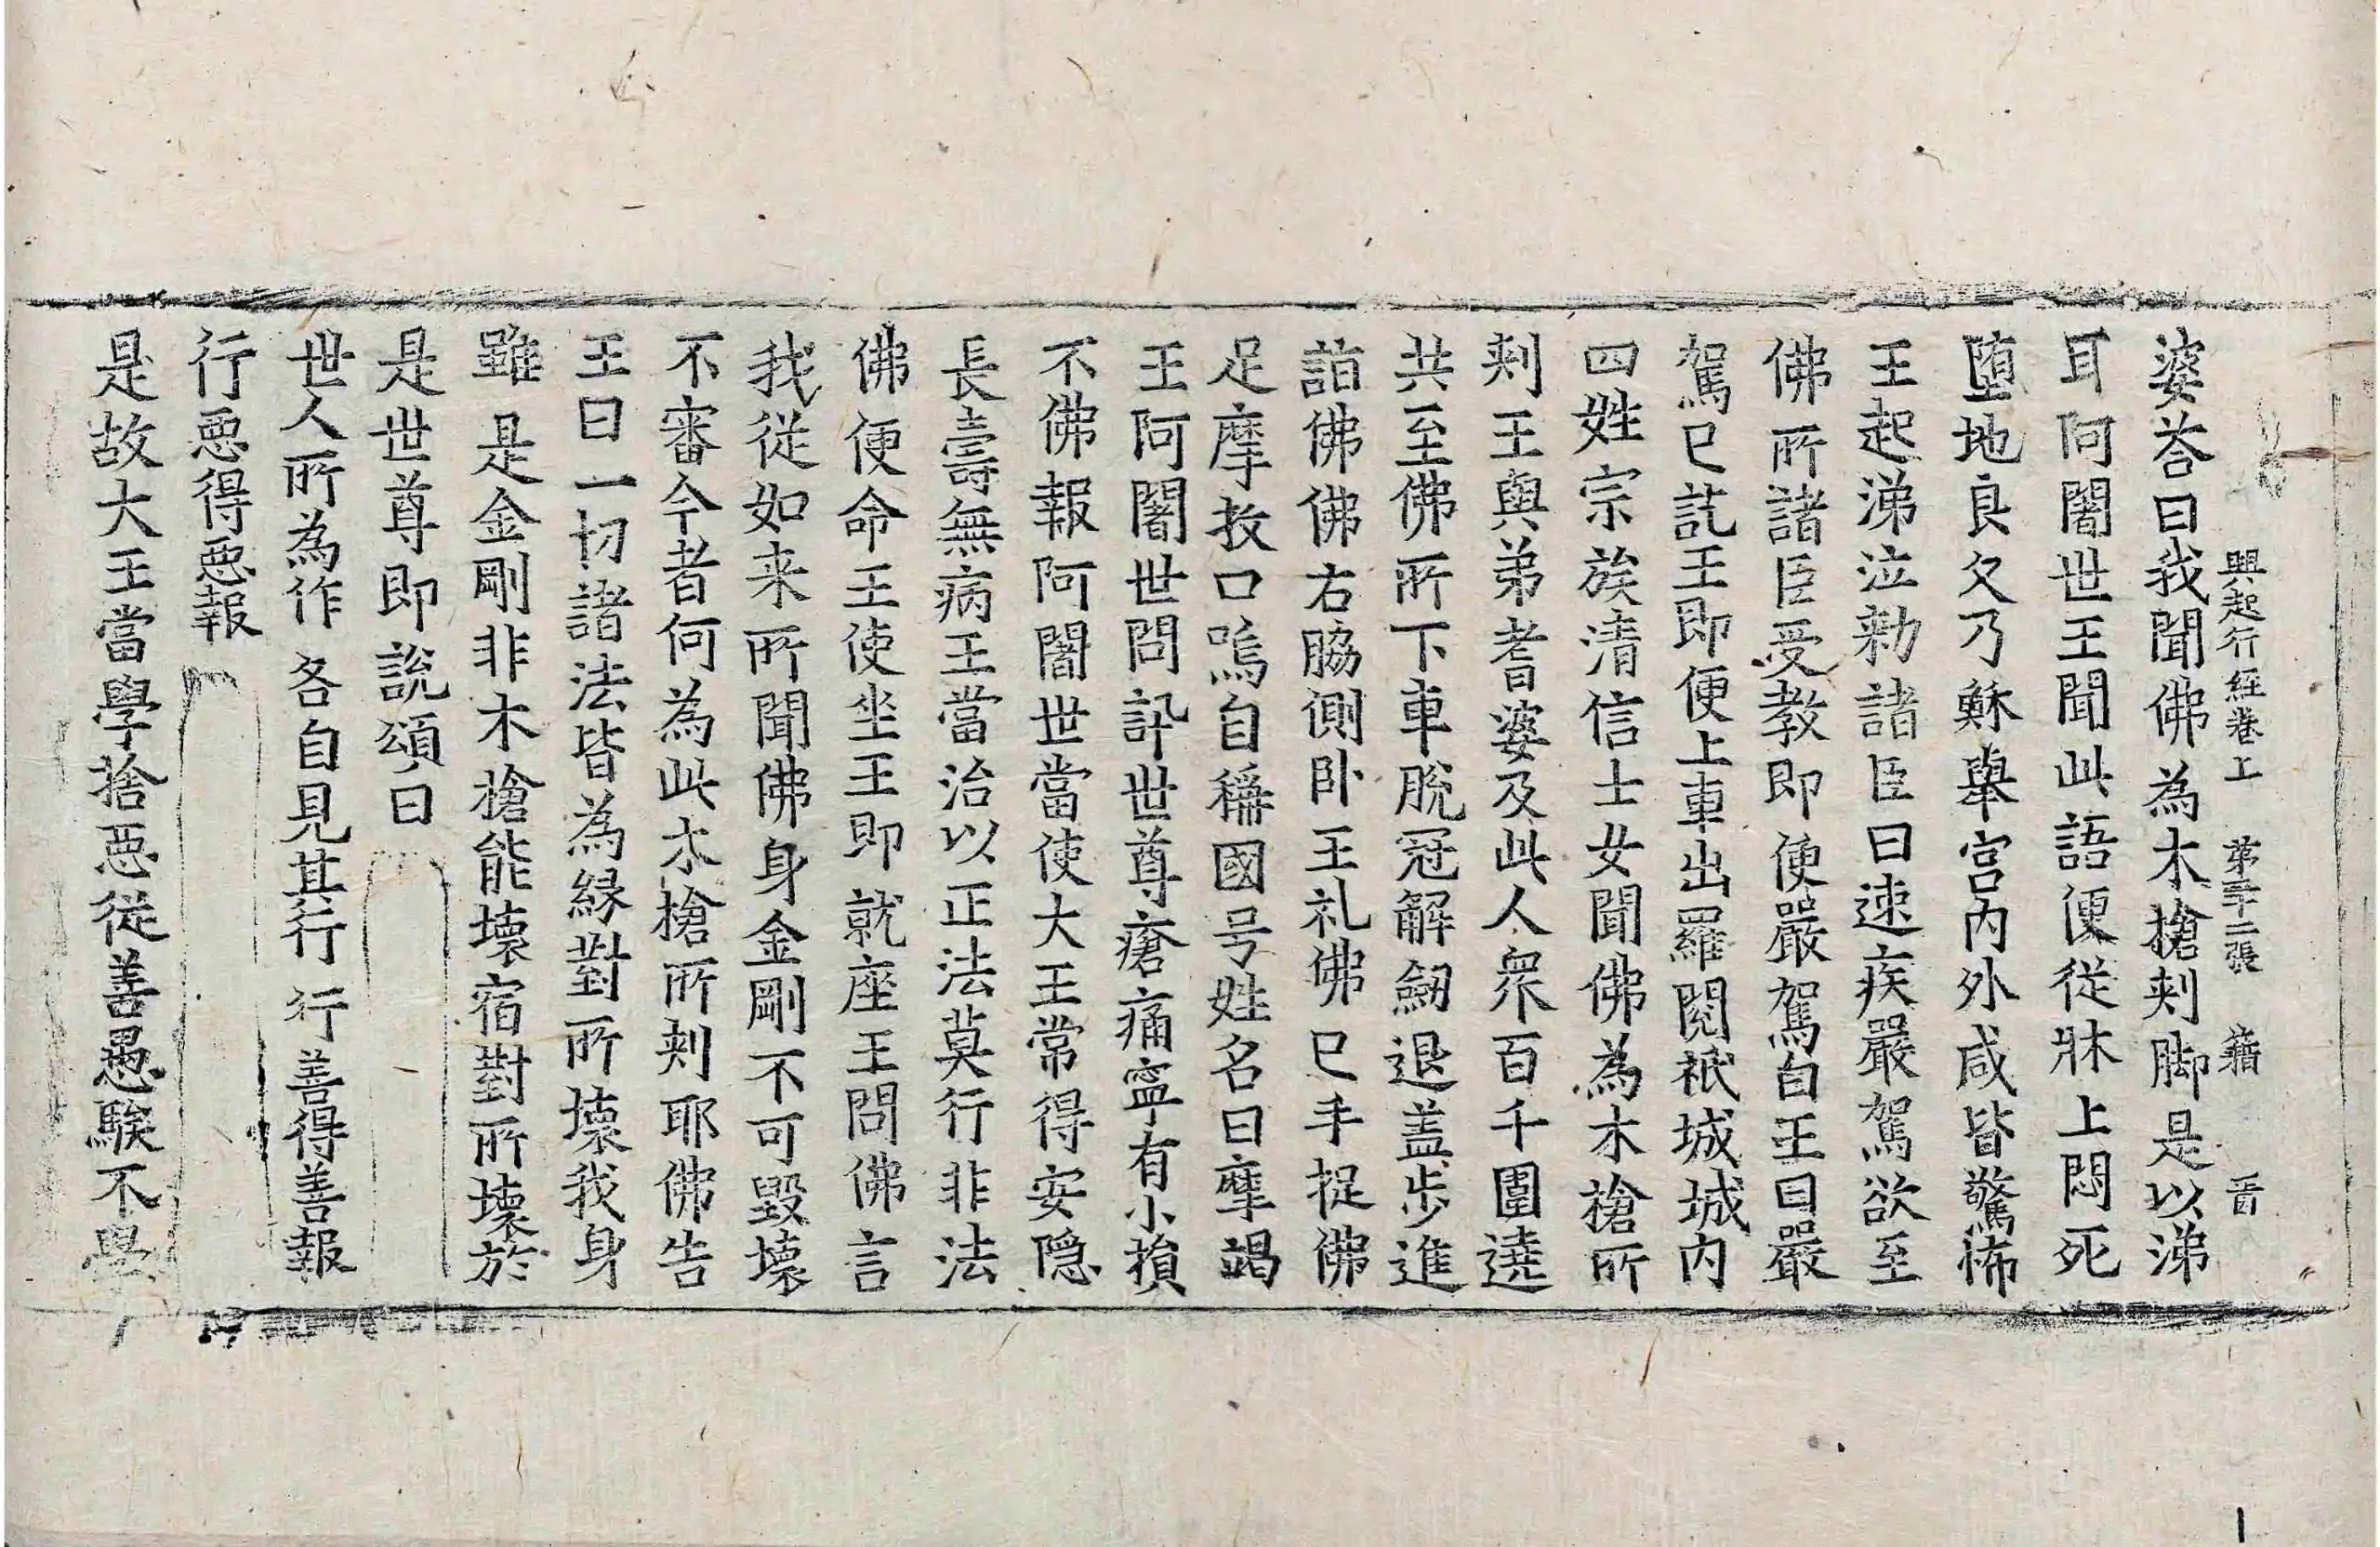 興起行経巻上 第二十二張 籍
婆荅曰我聞佛為木槍刾脚是以涕
耳阿闍世王聞此語便従牀上悶死
堕地良久乃穌舉宫内外咸皆驚怖
王起涕泣勑諸臣曰速疾嚴駕欲至
佛所諸臣受教即便嚴駕白王曰嚴
駕已訖王即便上車出羅閲祇城城内
四姓宗族清信士女聞佛為木槍所
刾王與弟耆婆及此人衆百千圍遶
共至佛所下車脫冠解劔退盖步進
詣佛佛右脇側卧王礼佛已手捉佛
足摩抆口嗚自稱國号姓名曰摩竭
王阿闍世問訊世尊瘡痛寧有小損
不佛報阿闍世當使大王常得安隠
長壽無病王當治以正法莫行非法
佛便命王使坐王即就座王問佛言
我従如来所聞佛身金剛不可毀壞
不審今者何為此木槍所刾耶佛告
王曰一切諸法皆為縁對所壞我身
雖是金剛非木槍能壞宿對所壞於
是世尊即説頌曰
世人所為作 各自見其行 行善得善報
行悪得悪報
是故大王當學捨悪従善愚騃不學